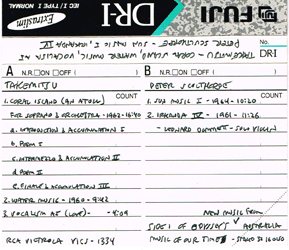 Extraslim
IEC I / TYPE I NORMAL
DR-I
FUJI
TAKEMITSU - CORAL ISLAND, WATER MUSIC, VOCALISM
PETER SCULTHORPE - SUN MUSIC I, IRKANDA IV
No.
DR-I
A N.R □ ON □ OFF ( )
TAKEMITSU
COUNT
1. CORAL ISLAND (AN ATOLL)
FOR SOPRANO & ORCHESTRA - 1962 -
a. INTRODUCTION & ACCUMULATION I
b. POEM I
c. INTERMEZZO & ACCUMULATION II
d. POEM II
e. FINALE & ACCUMULATION III
2. WATER MUSIC - 1960 - 9:42
3. VOCALISM AI (LOVE) - 4:09
RCA VICTROLA VICS - 1334
B N.R □ ON □ OFF ( )
PETER SCULTHORPE
COUNT
1. SUN MUSIC I - 1965 - 10:20
2. IRKANDA IV - 1961 - 11:26
LEONARD DOMMETT - SOLO VIOLIN
NEW MUSIC FROM
AUSTRALIA
SIDE 1 OF ODYSSEY
MUSIC OF OUR TIME